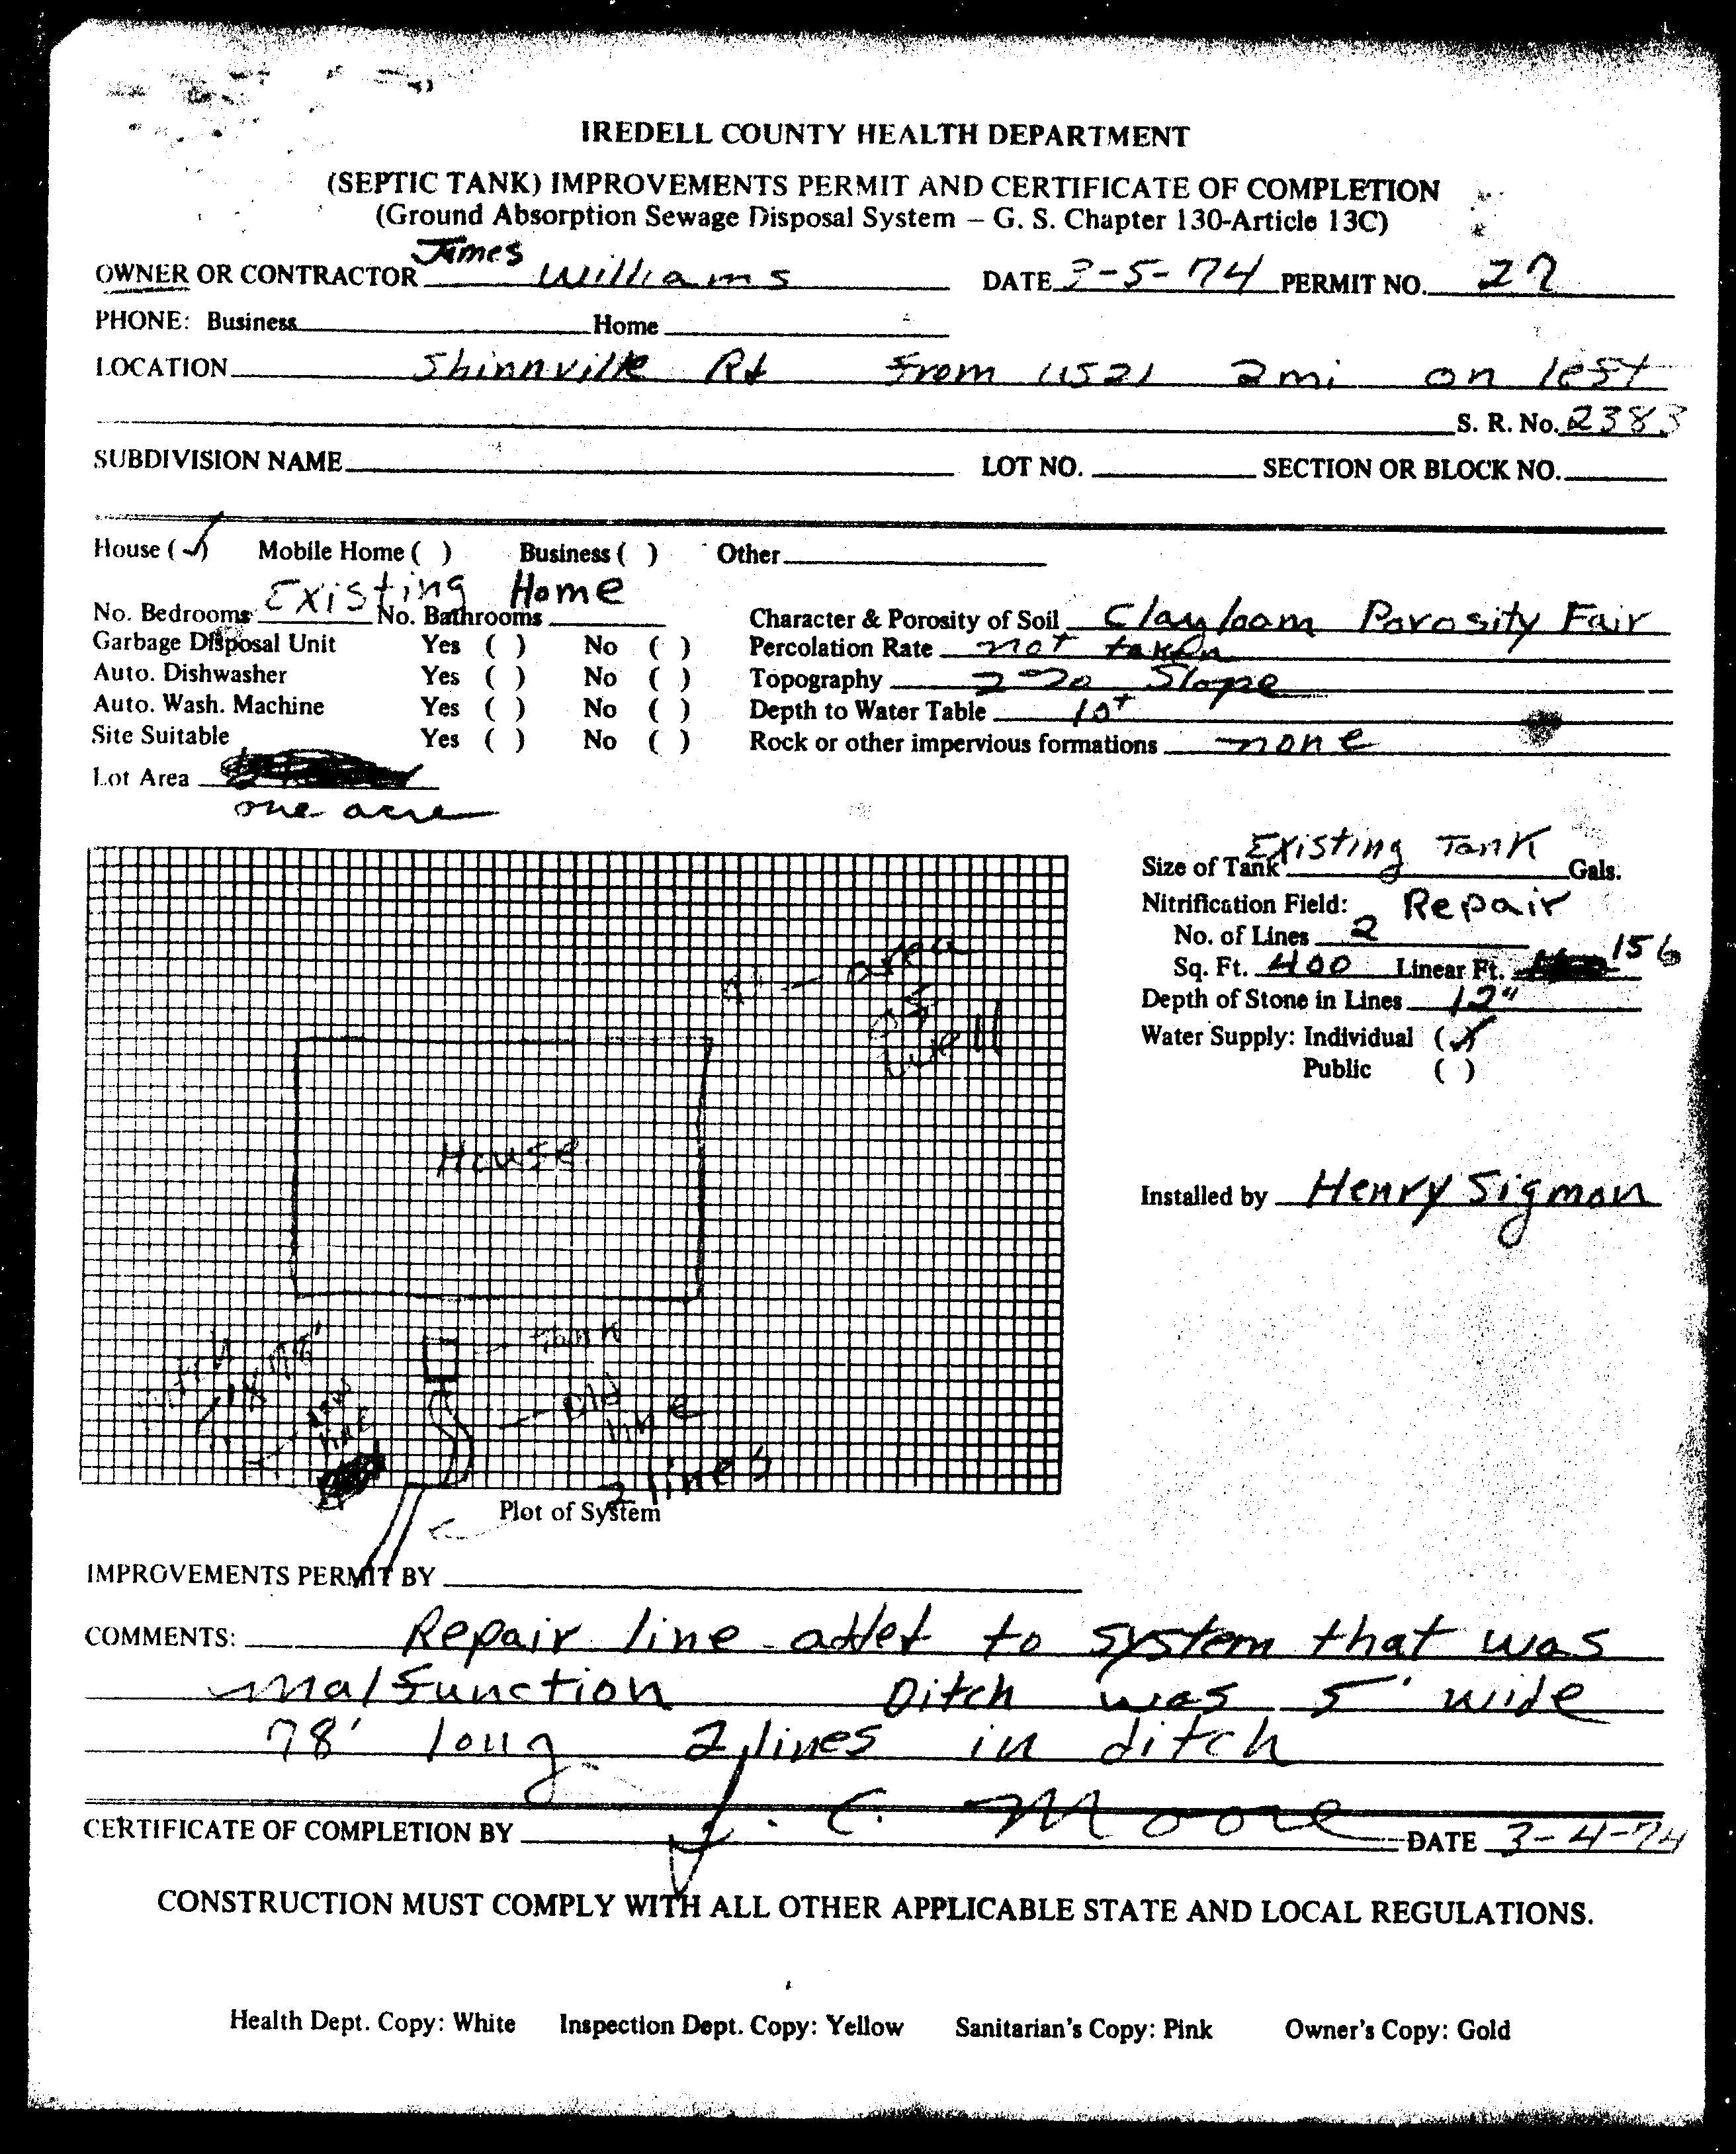 IREDELL COUNTY HEALTH DEPARTMENT
(SEPTIC TANK) IMPROVEMENTS PERMIT AND CERTIFICATE OF COMPLETION
(Ground Absorption Sewage Disposal System – G. S. Chapter 130-Article 13C)
OWNER OR CONTRACTOR James Williams DATE 3-5-74 PERMIT NO. 27
PHONE: Business Home
LOCATION Shinnville Rd from US21 2mi on left
S. R. No. 2383
SUBDIVISION NAME LOT NO. SECTION OR BLOCK NO.
House (✓) Mobile Home ( ) Business ( ) Other
Existing Home
No. Bedrooms No. Bathrooms Character & Porosity of Soil Clay loam Porosity Fair
Garbage Disposal Unit Yes ( ) No ( ) Percolation Rate not taken
Auto. Dishwasher Yes ( ) No ( ) Topography Slope
Auto. Wash. Machine Yes ( ) No ( ) Depth to Water Table 10+
Site Suitable Yes ( ) No ( ) Rock or other impervious formations none
Lot Area
one acre
Size of Tank Existing Tank Gals.
Nitrification Field: Repair
No. of Lines 2
Sq. Ft. 400 Linear Ft. 156
Depth of Stone in Lines 12"
Water Supply: Individual (✓)
Public ( )
Installed by Henry Sigmon
Well
House
Tank
Old
line
new
line
2 lines
Plot of System
IMPROVEMENTS PERMIT BY
COMMENTS: Repair line added to system that was
malfunction Ditch was 5' wide
78' long 2 lines in ditch
CERTIFICATE OF COMPLETION BY J. C. Moore DATE 3-4-74
CONSTRUCTION MUST COMPLY WITH ALL OTHER APPLICABLE STATE AND LOCAL REGULATIONS.
Health Dept. Copy: White Inspection Dept. Copy: Yellow Sanitarian's Copy: Pink Owner's Copy: Gold